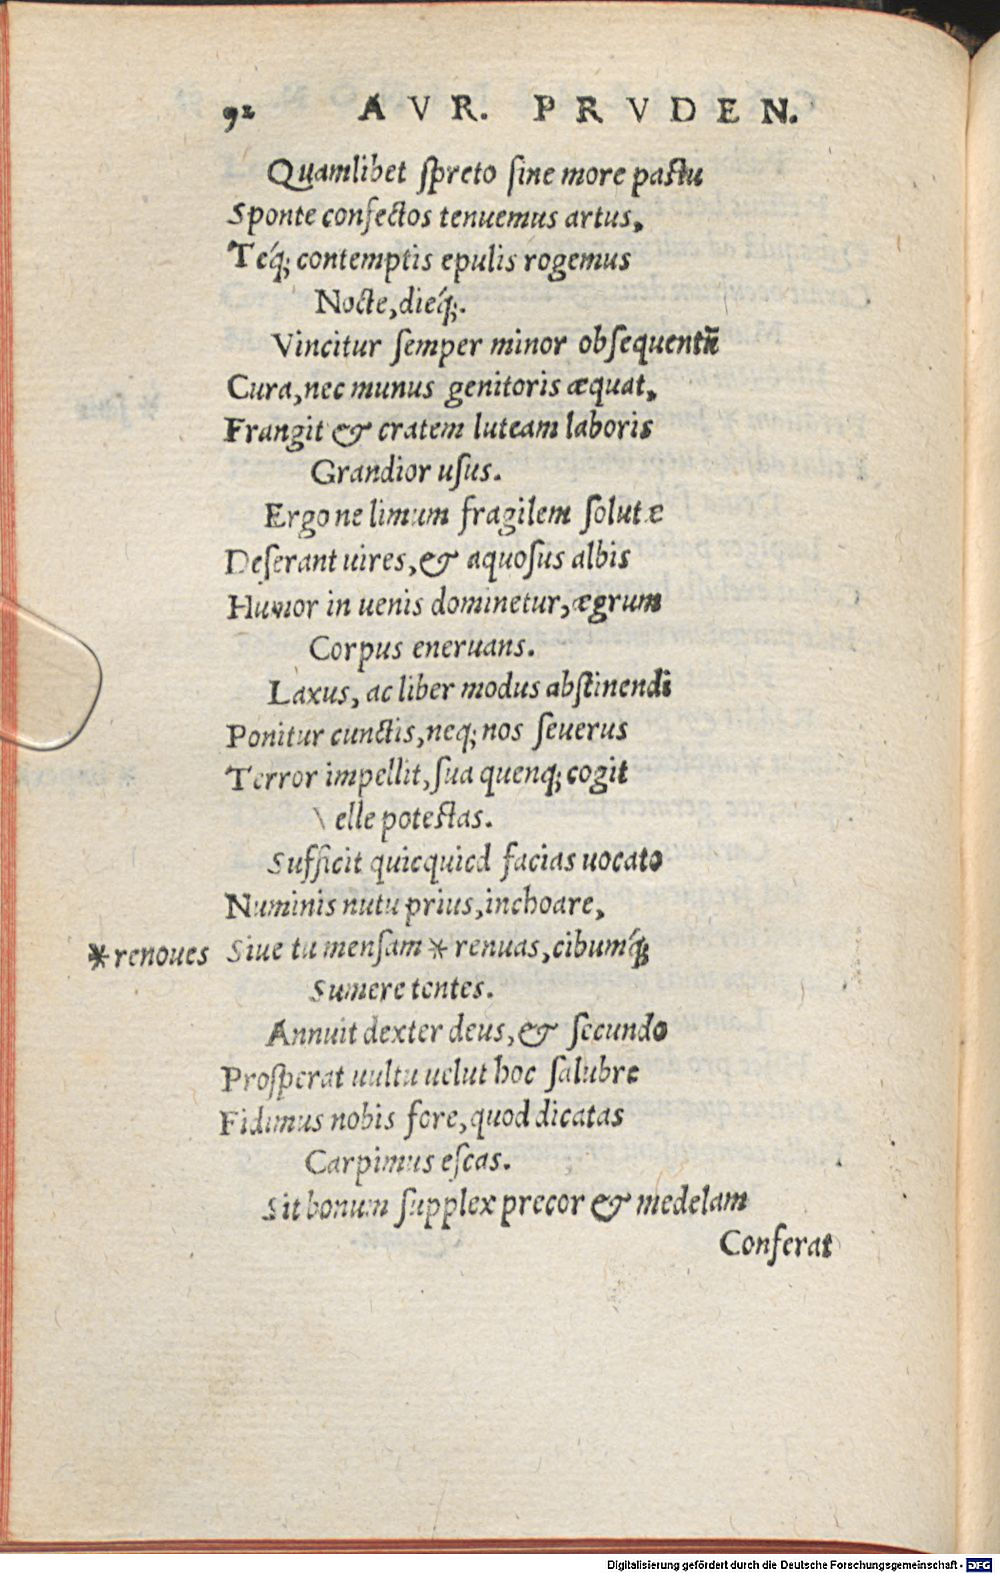 92 AVR. PRVDEN.
Quamlibet spreto sine more pastu
Sponte confectos tenuemus artus,
Teq́; contemptis epulis rogemus
Nocte, dieq́;.
Vincitur semper minor obsequentũ
Cura, nec munus genitoris æquat,
Frangit & cratem luteam laboris
Grandior usus.
Ergo ne limum fragilem solutæ
Deserant uires, & aquosus albis
Humor in uenis dominetur, ægrum
Corpus eneruans.
Laxus, ac liber modus abstinendi
Ponitur cunctis, neq; nos seuerus
Terror impellit, sua quenq; cogit
elle potestas.
Sufficit quicquicd facias uocato
Numinis nutu prius, inchoare,
*renoues Siue tu mensam * renuas, cibumq́;
Sumere tentes.
Annuit dexter deus, & secundo
Prosperat uultu uelut hoc salubre
Fidimus nobis fore, quod dicatas
Carpimus escas.
Sit bonum supplex precor & medelam
Conferat
Digitalisierung gefördert durch die Deutsche Forschungsgemeinschaft - DFG